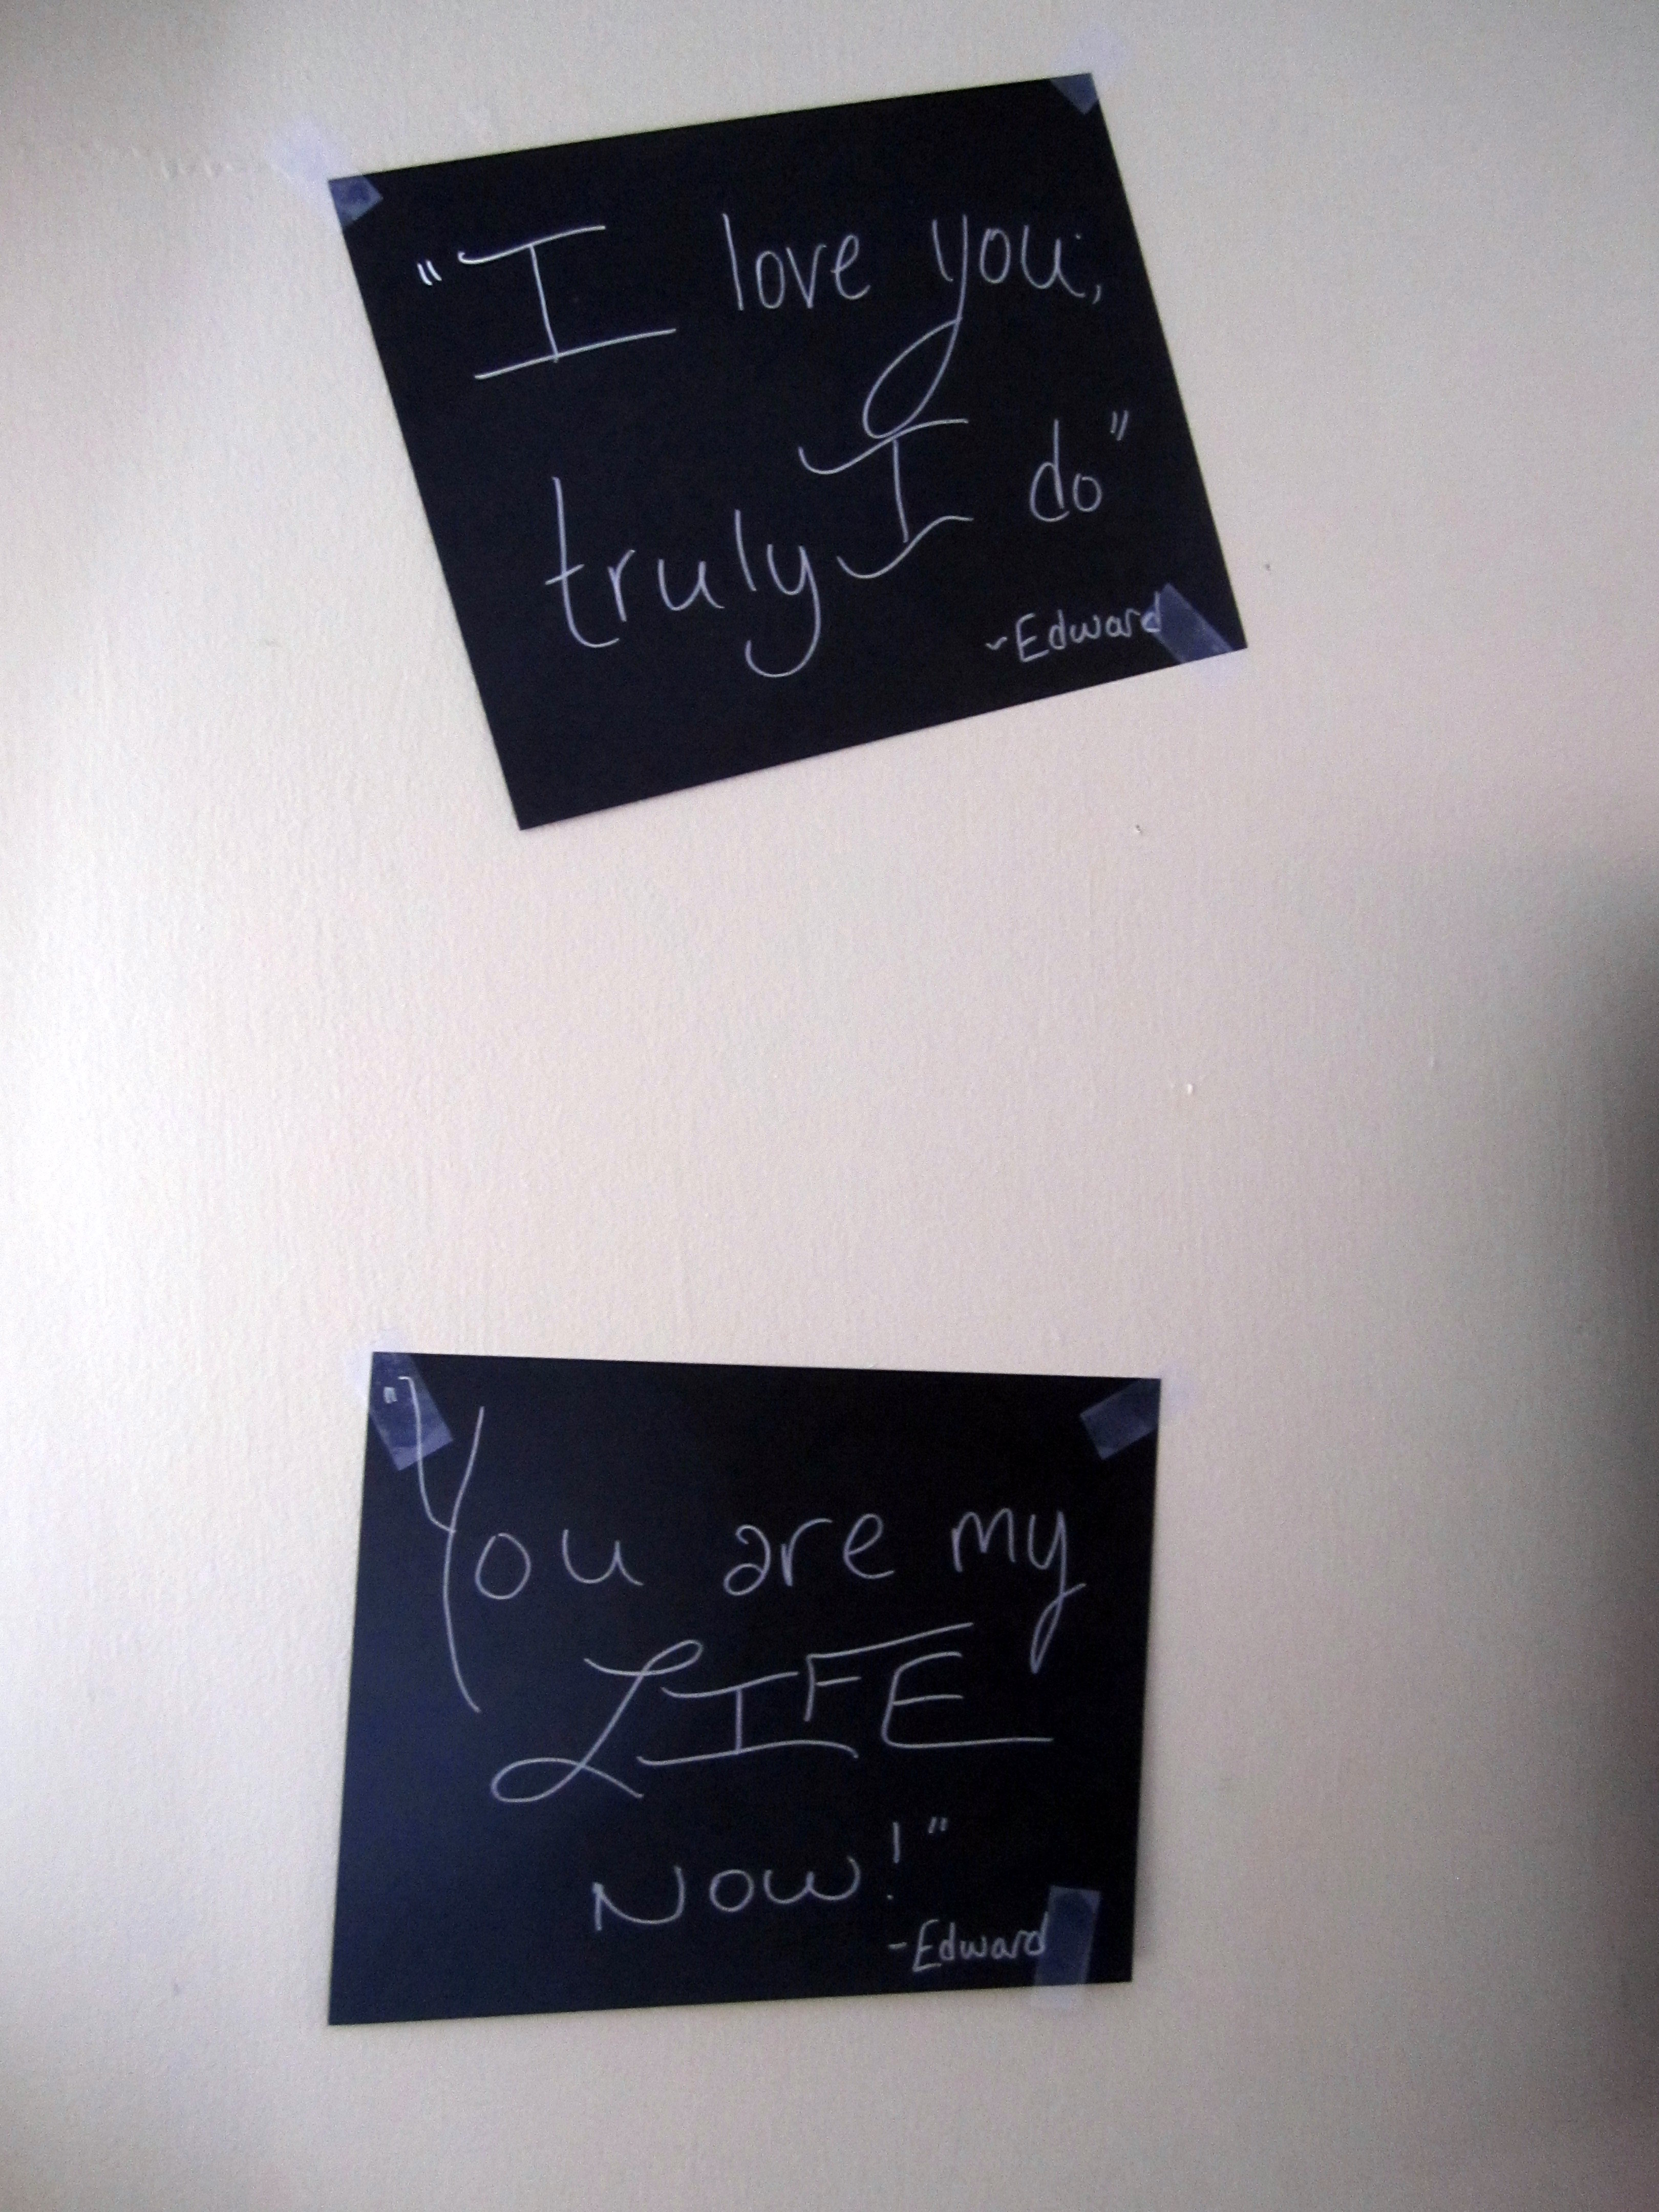 "I love you,
truly I do"
~Edward
"You are my
LIFE
NOW!"
-Edward